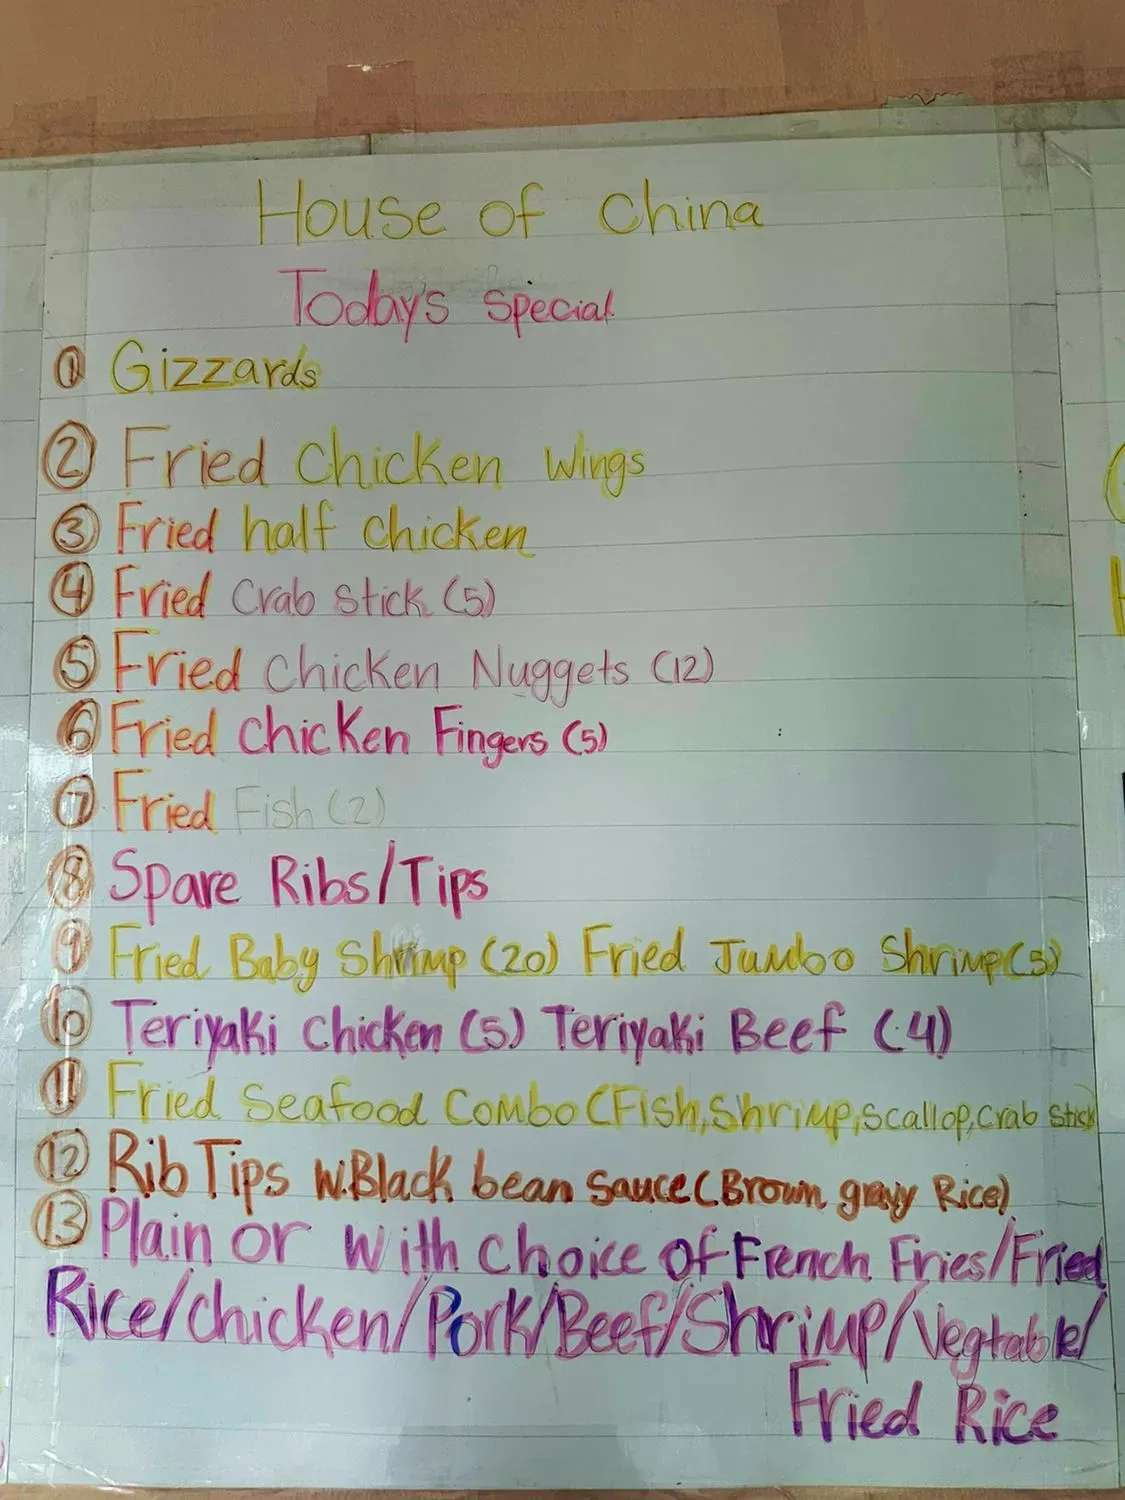 House of China
Todays Special
① Gizzards
② Fried Chicken Wings
③ Fried half chicken
④ Fried Crab Stick (5)
⑤ Fried Chicken Nuggets (12)
⑥ Fried Chicken Fingers (5)
⑦ Fried Fish (2)
⑧ Spare Ribs/Tips
⑨ Fried Baby Shrimp (20) Fried Jumbo Shrimp (5)
⑩ Teriyaki Chicken (5) Teriyaki Beef (4)
⑪ Fried Seafood Combo (Fish, Shrimp, Scallop, Crab Stick
⑫ Rib Tips W. Black bean Sauce (Brown gravy Rice)
⑬ Plain or with Choice Of French Fries/Fried
Rice/chicken/Pork/Beef/Shrimp/Vegtable/
Fried Rice